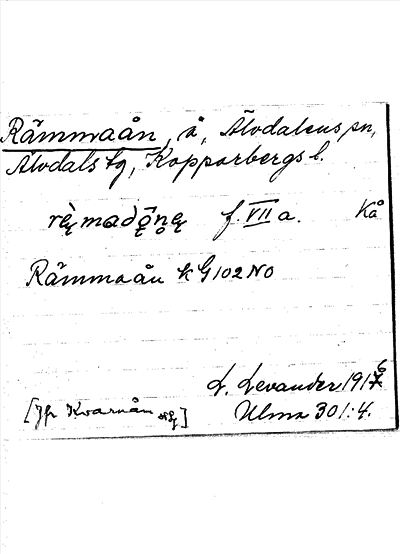 Rämmaån, å, Älvdalens sn,
Älvdals tg, Kopparbergs l.
rèmadǫ̂nę f. VII a. Kå
Rämmaån k G102 NO
L. Levander 1916
[Jfr Kvarnån] Ulma 301:4.